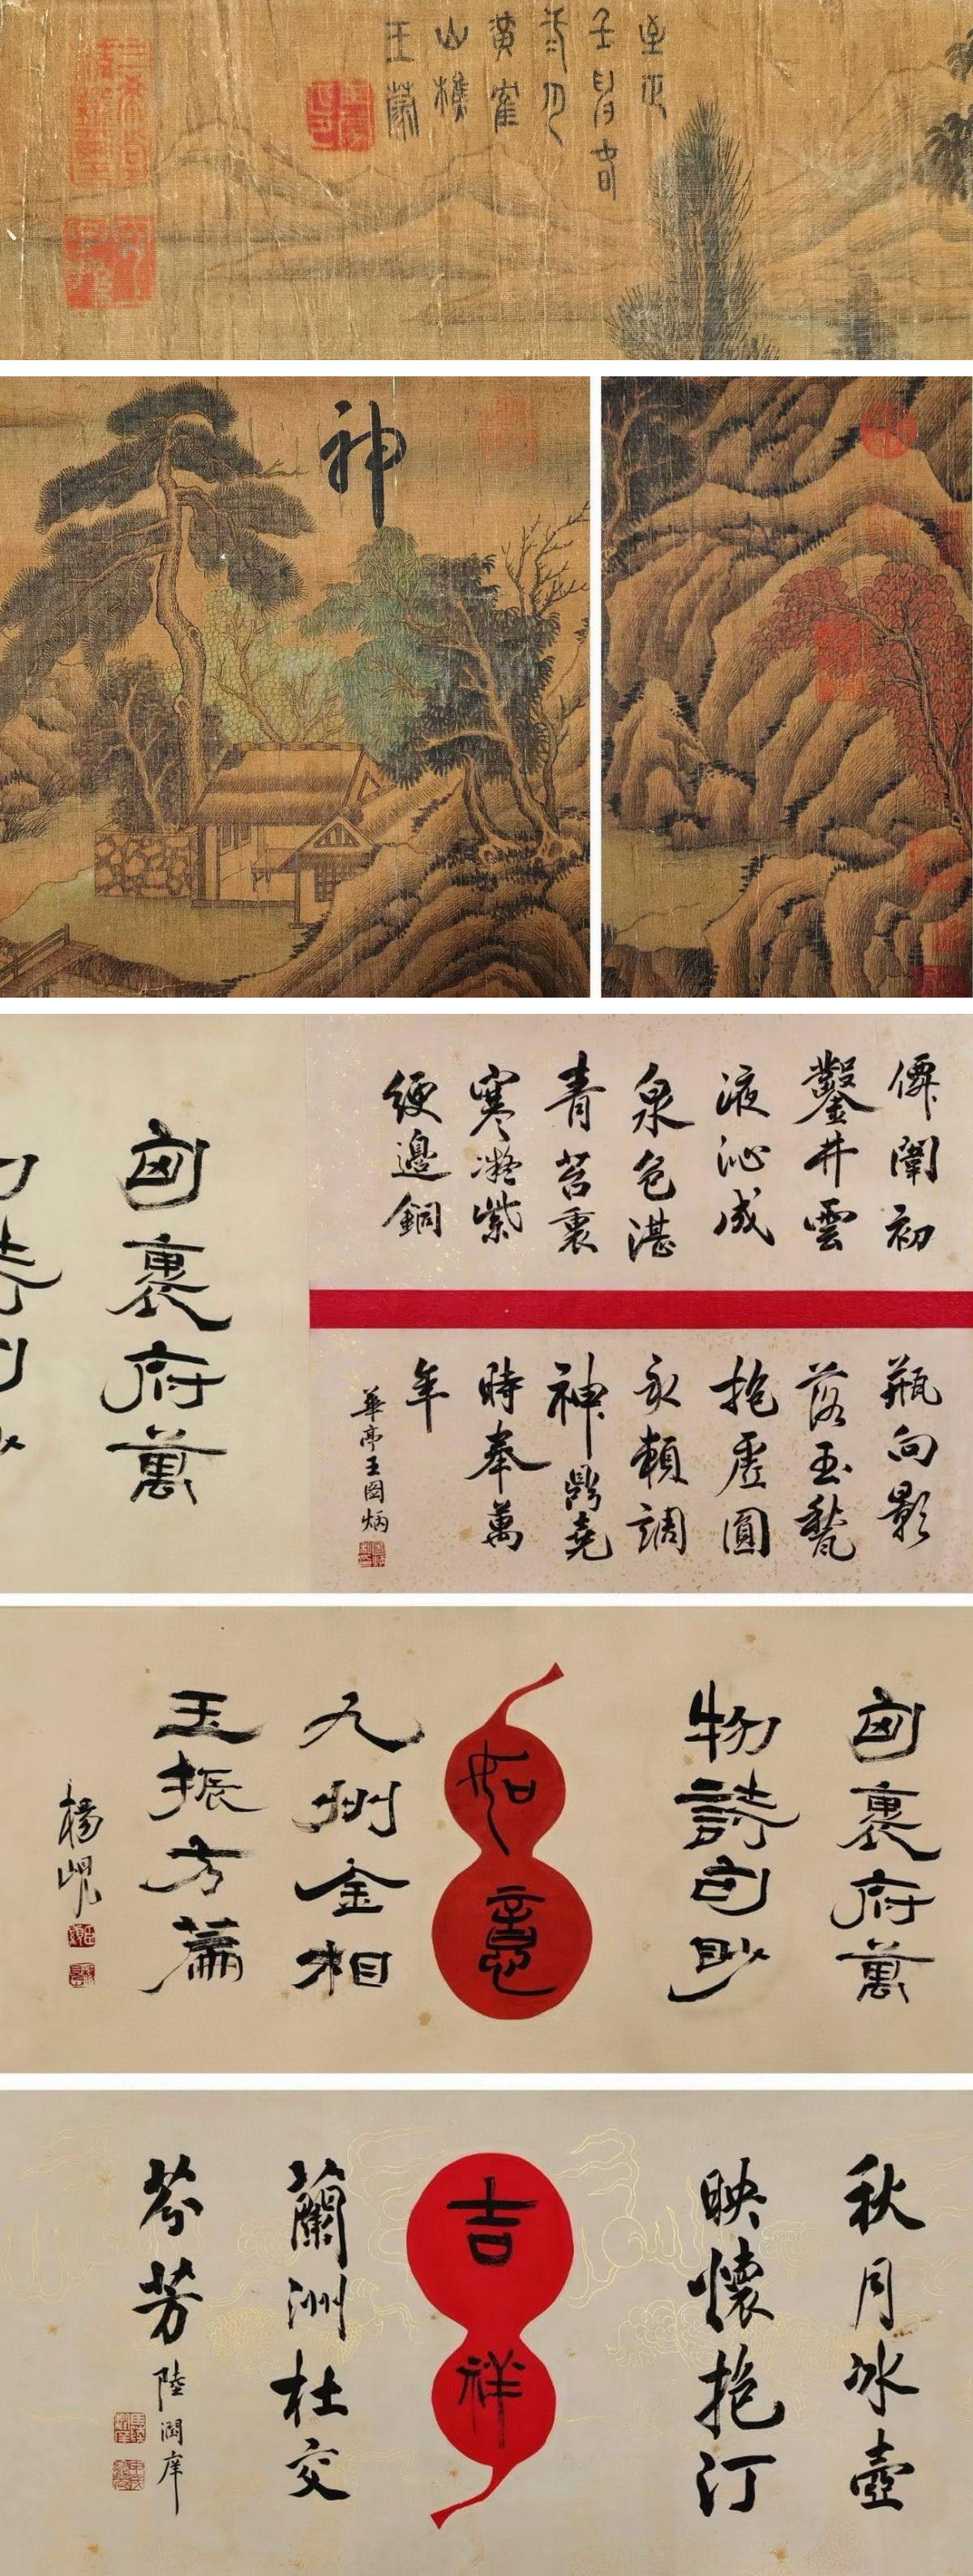 至正
黃寉
山樵
王蒙
神
僊闈初
鑿井雲
液沁成
泉色湛
青苔裏
寒凝紫
綆邊銅
瓶向影
落玉甃
抱虛圓
永賴調
神鼎堯
時奉萬
年
華亭王圖炳
匈裏府萬
匈裏府萬
物詩句眇
如意
九州金相
玉振方篇
楊峴
秋月冰壺
映懷抱汀
吉祥
蘭洲杜交
芬芳
陸潤庠